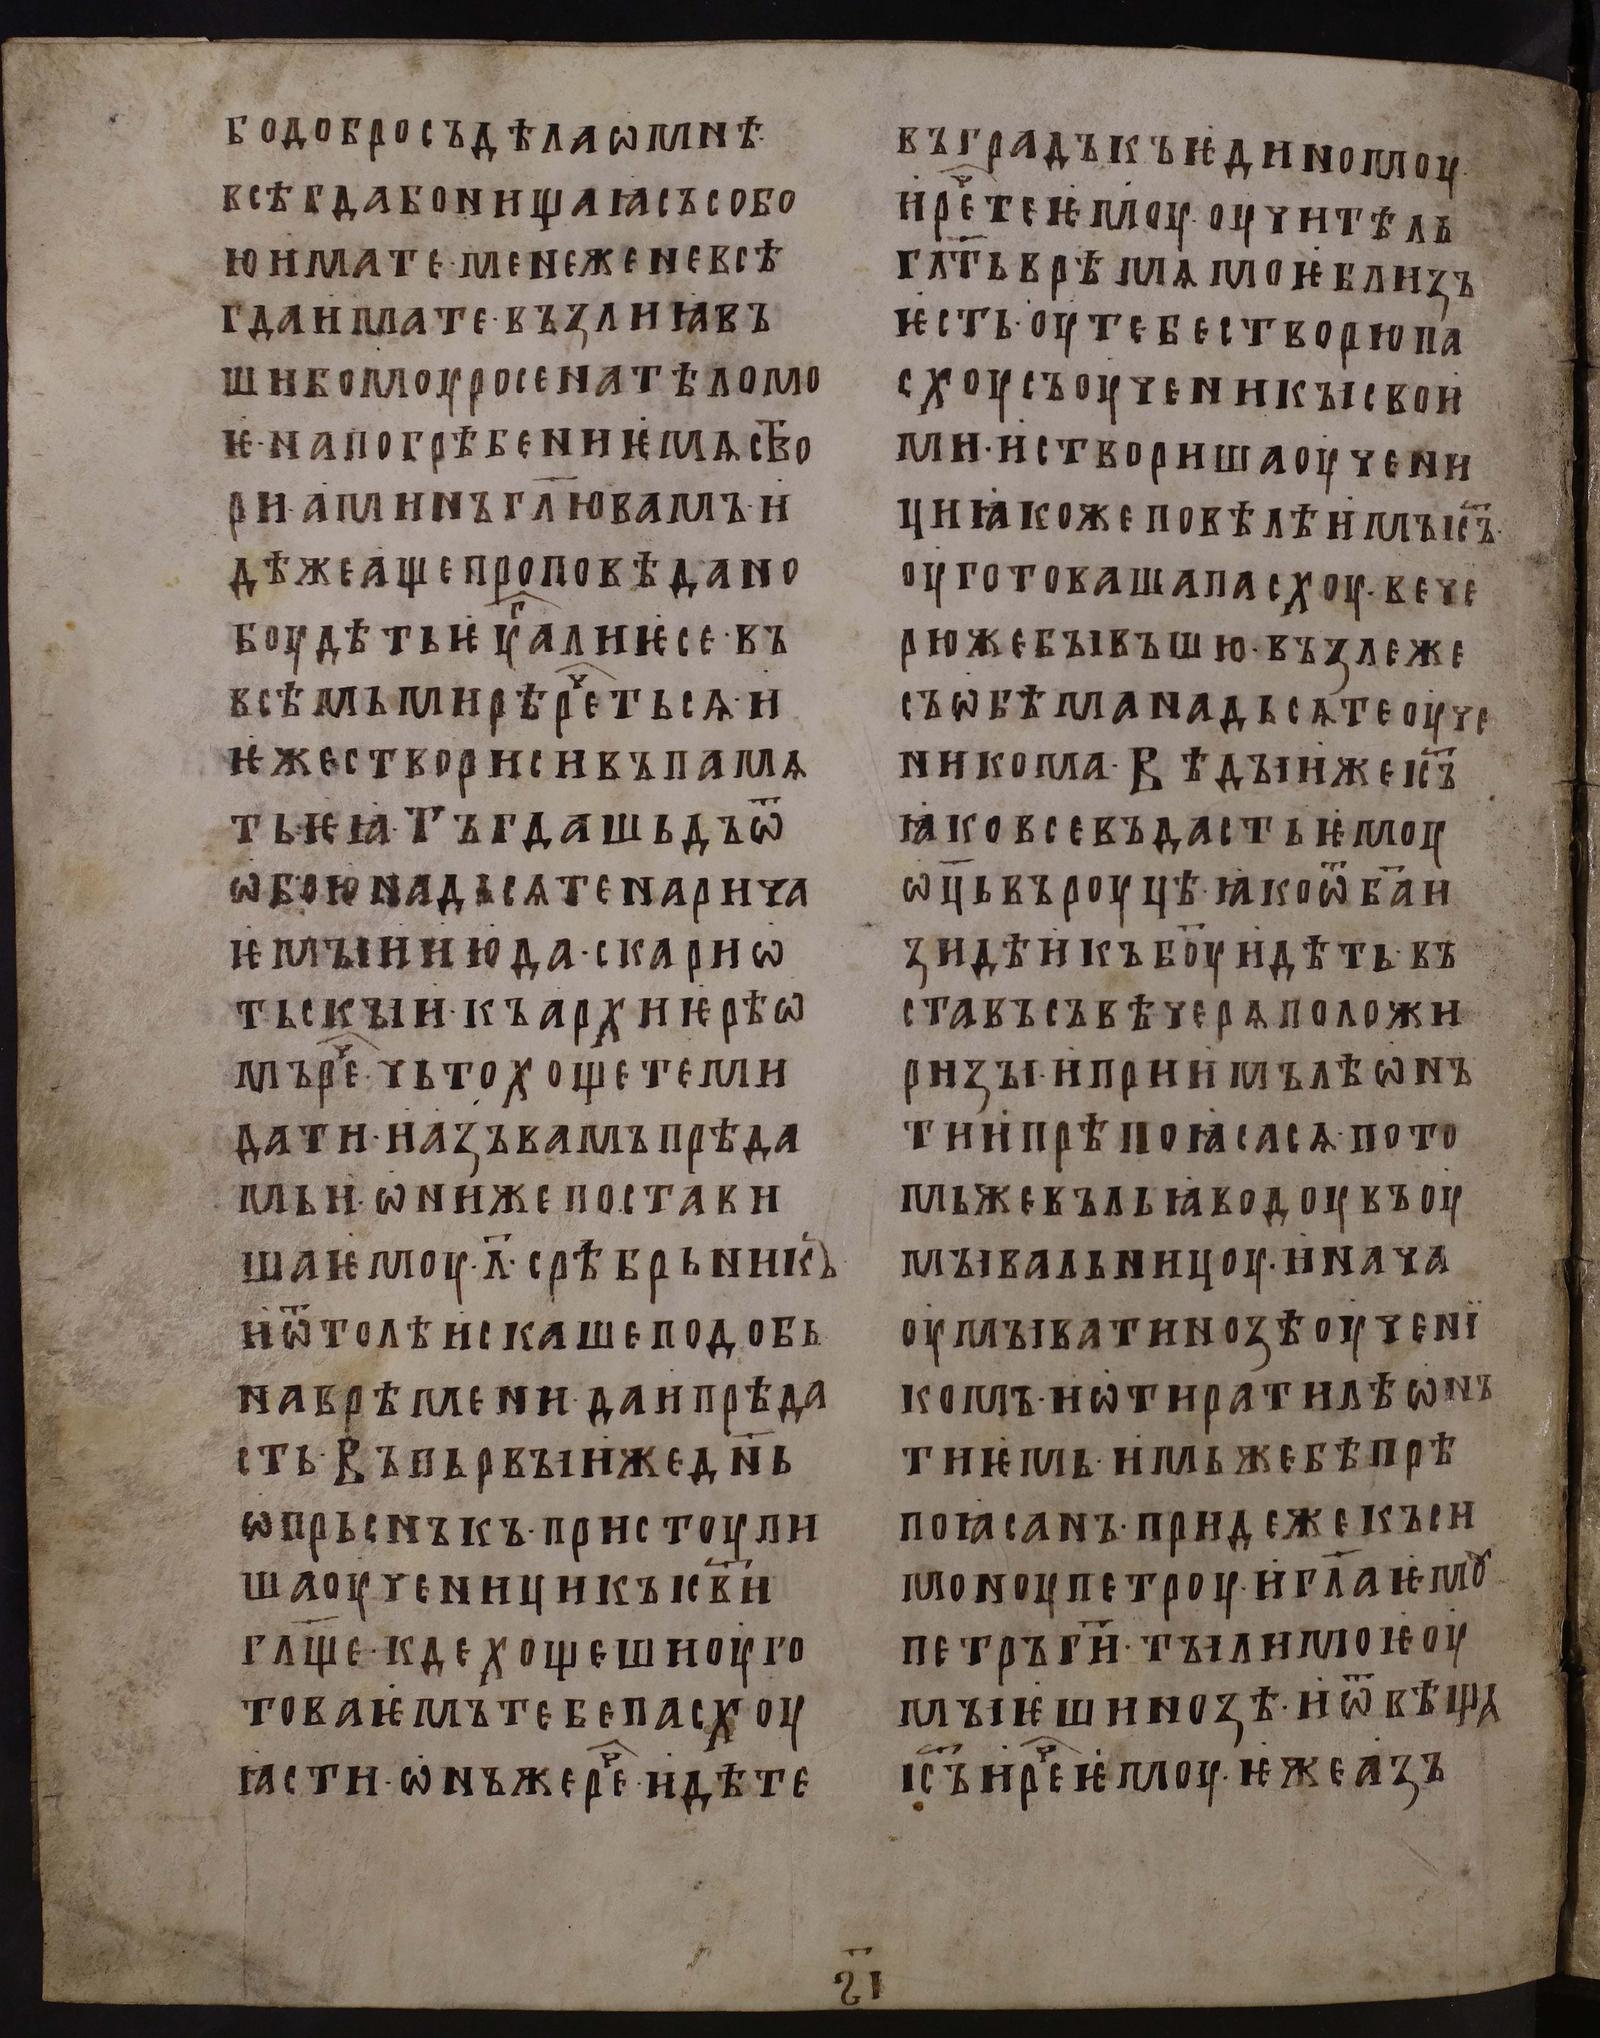 бодобросъдѣлаѡмнѣ·
всѣгдабонищаꙗсъсобо
юимате·менеженевсѣ
гдаимате·възлиꙗвъ
шибомоуросенатѣломо
ѥ·напогрѣбениѥмѧст҇во
ри·аминъгл҃ювамъ·и
дѣжеащепроповѣдано
боудѣтьѥуⷢ҇алиѥсе·въ
всѣмьмирѣрⷱ҇етьсѧ·и
ѥжестворисивъпамѧ
тьѥꙗ·Тъгдашьдъѿ
ѡбоюнадьсѧтенарича
ѥмꙑииюда·скариѡ
тьскꙑи·къархиѥрѣѡ
мърⷱ҇е·чьтохощетеми
дати·иазъвамъпрѣда
мьи·ѡнижепостави
шаѥмоу·л҃·срѣбрьникъ
иѿтолѣискашеподобь
навремени·даипрѣда
сть·Въпьрвꙑижедн҃ь
ѡпрьснъкъ·пристоупи
шаоученицикъісв҃и
гл҃ще·кдехощешиоуго
товаѥмътебепасхоу
ꙗсти·ѡнъжерⷱ҇е·идѣте
въградъкъѥдиномоу·
ирⷱ҇етеѥмоу·оучитѣль
гл҃тьврѣмѧмоѥблизъ
ѥсть·оутебестворюпа
схоусъоученикꙑсвои
ми·истворишаоучени
циꙗкожеповѣлѣимъіс҃ъ·
оуготовашапасхоу·вече
рюжебꙑвъшю·възлеже
съѡбѣманадьсѧтеоуче
никома·Вѣдꙑижеіс҃ъ
ꙗковсевъдастьѥмоу
ѡц҃ьвъроуцѣ·ꙗкоѿб҃аи
зидѣикъбо҃уидѣть·въ
ставъсъвѣчерѧположи
ризꙑ·иприимълѣѡнъ
тиипрѣпоꙗсасѧ·пото
мьжевъльꙗводоувъоу
мꙑвальницоу·иначa
оумꙑватинозѣоученї
комъ·иѡтиратилѣѡнъ
тиѥмь·имьжебѣпрѣ
поꙗсанъ·придежекъси
моноупетроу·игл҃аѥмꙋ
петръг҃и·тꙑлимоѥоу
мꙑѥшинозѣ·иѿвѣщѧ
іс҃ъирⷱ҇еѥмоу·ѥжеазъ
ѕ҃і